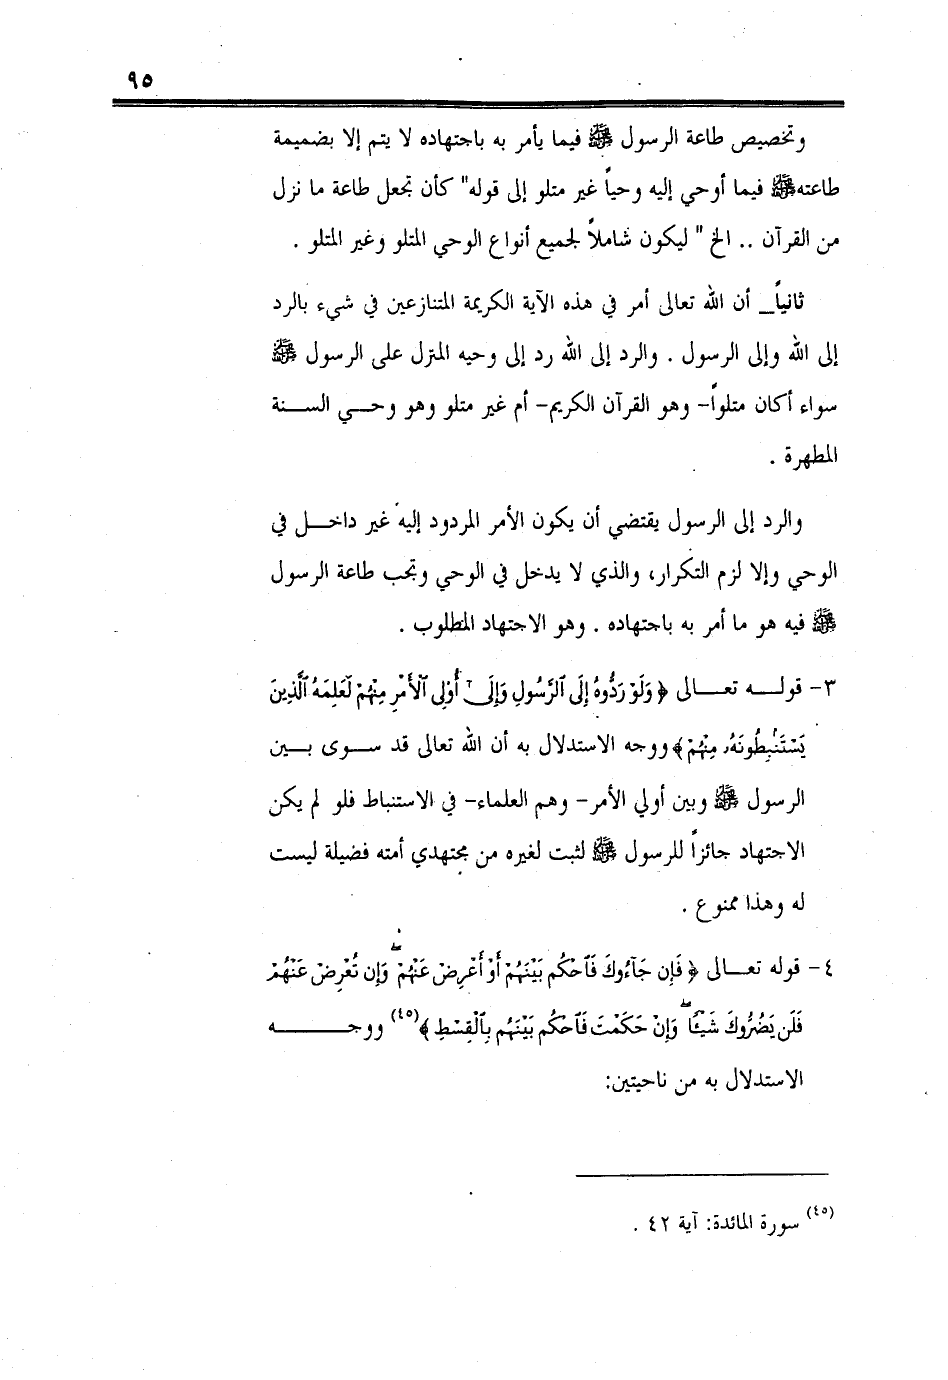 ٩٥
وتخصيص طاعة الرسول ﷺ فيما يأمر به باجتهاده لا يتم إلا بضميمة
طاعته ﷺ فيما أوحي إليه وحياً غير متلو إلى قوله" كأن تجعل طاعة ما نزل
من القرآن .. الخ " ليكون شاملاً لجميع أنواع الوحي المتلو وغير المتلو .
ثانياً_ أن الله تعالى أمر في هذه الآية الكريمة المتنازعين في شيء بالرد
إلى الله وإلى الرسول . والرد إلى الله رد إلى وحيه المنزل على الرسول ﷺ
سواء أكان متلواً- وهو القرآن الكريم- أم غير متلو وهو وحي السنة
المطهرة .
والرد إلى الرسول يقتضي أن يكون الأمر المردود إليه غير داخل في
الوحي وإلا لزم التكرار، والذي لا يدخل في الوحي وتجب طاعة الرسول
ﷺ فيه هو ما أمر به باجتهاده . وهو الاجتهاد المطلوب .
٣- قوله تعالى ﴿ وَلَوْ رَدُّوهُ إِلَى ٱلرَّسُولِ وَإِلَىٰٓ أُوْلِى ٱلْأَمْرِ مِنْهُمْ لَعَلِمَهُ ٱلَّذِينَ
يَسْتَنۢبِطُونَهُۥ مِنْهُمْ ﴾ ووجه الاستدلال به أن الله تعالى قد سوى بين
الرسول ﷺ وبين أولي الأمر- وهم العلماء- في الاستنباط فلو لم يكن
الاجتهاد جائزاً للرسول ﷺ لثبت لغيره من مجتهدي أمته فضيلة ليست
له وهذا ممنوع .
٤- قوله تعالى ﴿ فَإِن جَآءُوكَ فَٱحْكُم بَيْنَهُمْ أَوْ أَعْرِضْ عَنْهُمْ ۖ وَإِن تُعْرِضْ عَنْهُمْ
فَلَن يَضُرُّوكَ شَيْـًٔا ۖ وَإِنْ حَكَمْتَ فَٱحْكُم بَيْنَهُم بِٱلْقِسْطِ ﴾(٤٥) ووجه
الاستدلال به من ناحيتين:
(٤٥) سورة المائدة: آية ٤٢ .